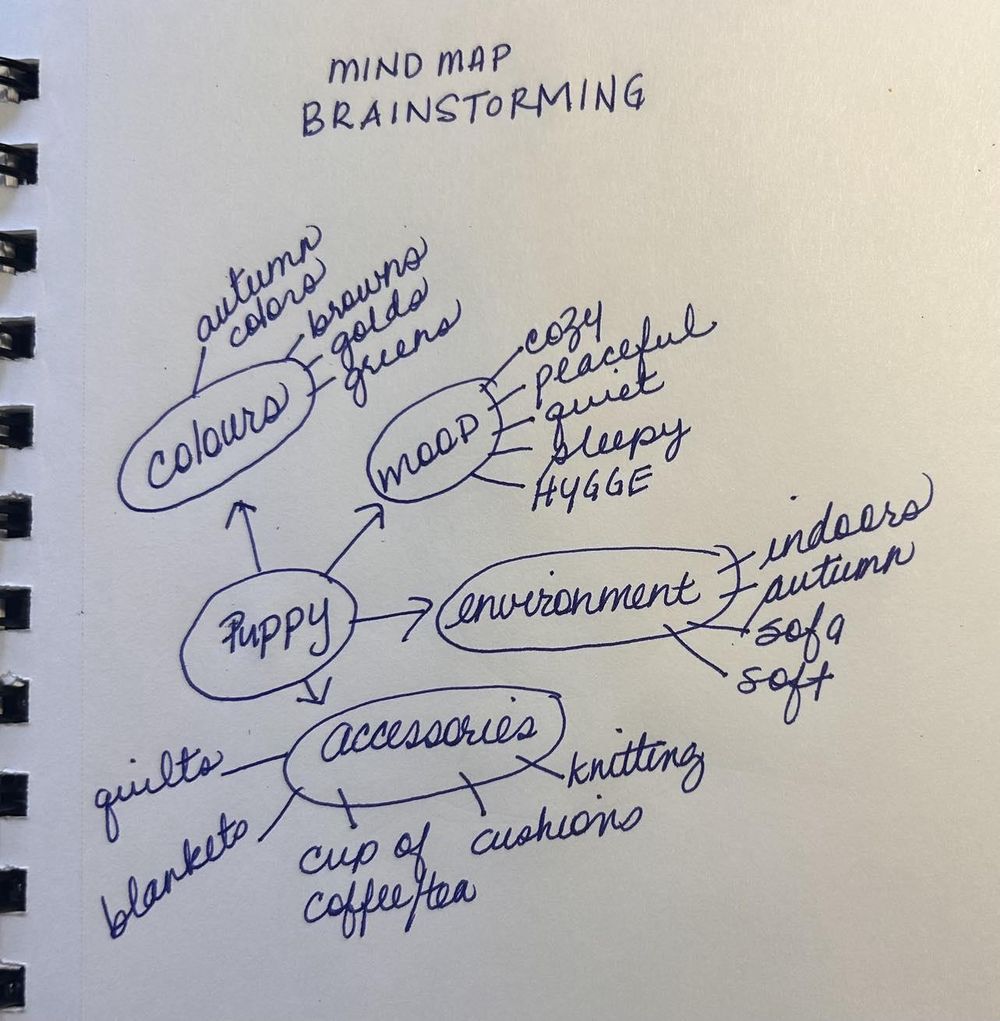 MIND MAP
BRAINSTORMING
autumn
colors
browns
golds
greens
colours
cozy
peaceful
quiet
sleepy
HYGGE
mood
indoors
autumn
sofa
soft
environment
Puppy
accessories
quilts
blankets
cup of
coffee/tea
cushions
knitting